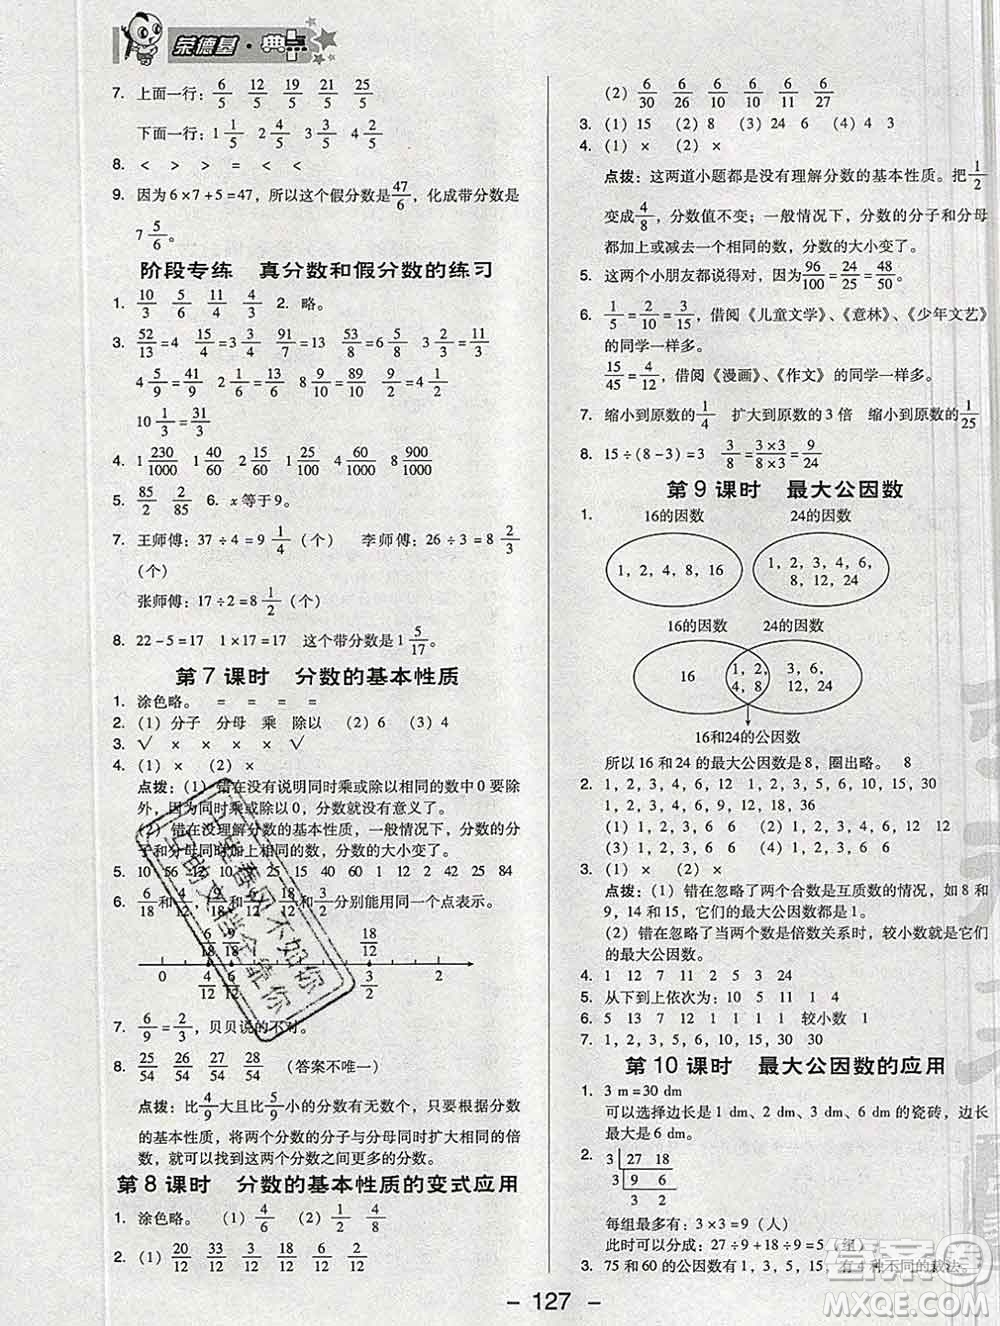 荣德基·典点
7. 上面一行：6/5 12/5 19/5 21/5 25/5
下面一行：1 1/5 2 4/5 3 3/5 4 2/5
8. < > > = < <
9. 因为 6×7+5=47，所以这个假分数是47/6，化成带分数是
7 5/6。
阶段专练 真分数和假分数的练习
1. 10/3 5/6 11/4 4/3 2. 略。
3. 52/13=4 15/4=3 3/4 91/7=13 38/5=7 3/5
4 5/9=41/9 2 1/6=13/6 8 10/9=89/10 13/3=4 1/3
10 1/3=31/3
4. 1 230/1000 1 40/60 2 15/60 1 25/100 4 60/100 8 900/1000
5. 85/2 2/85 6. x 等于 9。
7. 王师傅：37÷4=9 1/4（个） 李师傅：26÷3=8 2/3
（个）
张师傅：17÷2=8 1/2（个）
8. 22-5=17 1×17=17 这个带分数是 1 5/17。
第 7 课时 分数的基本性质
1. 涂色略。 = = = =
2. (1) 分子 分母 乘 除以 (2) 6 (3) 4
3. √ × × × × √
4. (1) × (2) ×
点拨：(1) 错在没有说明同时乘或除以相同的数中 0 要除
外，因为同时乘或除以 0，分数就没有意义了。
(2) 错在没理解分数的基本性质，一般情况下，分数的分
子和分母同时加上相同的数，分数的大小变了。
5. 10 56 12 10 2 15 40 15 21 22 42 28 84
6. 6/18和4/12 9/18和6/12 18/12和3/2分别能用同一个点表示。
6/18 9/18 18/12
0 4/12 6/12 1 3/2 2
7. 6/9=2/3，贝贝说的不对。
8. 25/54 26/54 27/54 28/54（答案不唯一）
点拨：比4/9大且比5/9小的分数有无数个，只要根据分数
的基本性质，将两个分数的分子与分母同时扩大相同的倍
数，就可以找到这两个分数之间更多的分数。
第 8 课时 分数的基本性质的变式应用
1. 涂色略。 (1) 4/6 (2) 1/2 4/8
2. (1) 20/12 33/12 6/12 3/12 14/12
(2) 6/30 6/26 6/10 6/9 6/10 6/27
3. (1) 15 (2) 8 (3) 24 6 (4) 4 3
4. (1) × (2) ×
点拨：这两道小题都是没有理解分数的基本性质。把1/2
变成4/8，分数值不变；一般情况下，分数的分子和分母
都加上或减去一个相同的数，分数的大小变了。
5. 这两个小朋友都说得对，因为96/100=24/25=48/50。
6. 1/5=2/10=3/15，借阅《儿童文学》、《意林》、《少年文艺》
的同学一样多。
15/45=4/12，借阅《漫画》、《作文》的同学一样多。
7. 缩小到原数的1/4 扩大到原数的 3 倍 缩小到原数的1/25
8. 15÷(8-3)=3 3/8=3×3/8×3=9/24
第 9 课时 最大公因数
1. 16的因数 24的因数
1，2，4，8，16 1，2，3，4，6，8，12，24
16的因数 24的因数
16 1，2，4，8 3，6，12，24
16和24的公因数
所以 16 和 24 的最大公因数是 8，圈出略。 8
2. 1，2，3，5，6，10，15，30
1，2，3，4，6，8，12，16，24，48
(1) 1，2，3，6 6 (2) 1，2，3，4，6，12 12
(3) 1，2，3，6 6
3. (1) × (2) ×
点拨：(1) 错在忽略了两个合数是互质数的情况，如 8 和
9，14 和 15，它们的最大公因数都是 1。
(2) 错在忽略了当两个数是倍数关系时，较小数就是它们
的最大公因数。
4. 15 25 10 1 1 12 7 24
5. 从下到上依次为：10 5 11 1 4
6. 5 13 7 12 1 1 1 1 较小数 1
7. 1，2，3，5，6，10，15，30 30
第 10 课时 最大公因数的应用
1. 3 m=30 dm
可以选择边长是 1 dm、2 dm、3 dm、6 dm 的瓷砖，边长
最大是 6 dm。
2. 3 27 18
3 9 6
3 2
每组最多有：3×3=9（人）
此时可以分成：27÷9+18÷9=5（组）
3. 75 和 60 的公因数有 1，3，5，15，有 4 种不同的裁法。
- 127 -
答案圈
MXQE.COM